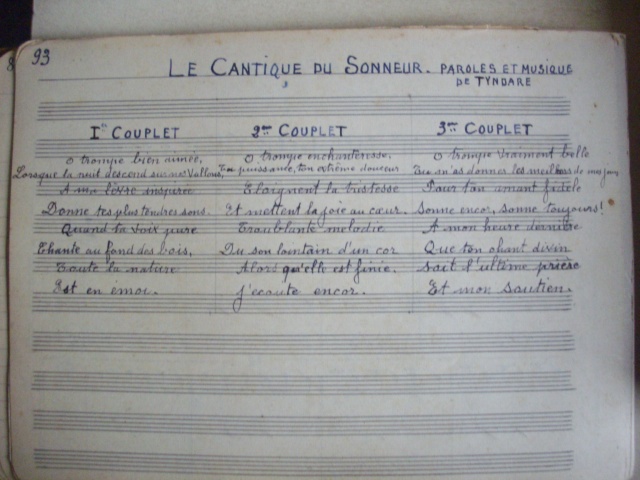 93
LE CANTIQUE DU SONNEUR. PAROLES ET MUSIQUE
DE TYNDARE
1er COUPLET
O trompe bien aimée,
Lorsque la nuit descend sur nos Vallons,
A ma lèvre inspirée
Donne tes plus tendres sons.
Quand ta voix pure
Chante au fond des bois,
Toute la nature
Est en émoi.
2me COUPLET
O trompe enchanteresse,
Ta puissance, ton extrême douceur
Eloignent la tristesse
Et mettent la joie au cœur.
Troublante mélodie
Du son lointain d'un cor
Alors qu'elle est finie,
J'écoute encor.
3me COUPLET
O trompe vraiment belle
Tu m'as donner les meilleurs de mes jours
Pour ton amant fidèle
Sonne encor, sonne toujours!
A mon heure dernière
Que ton chant divin
Soit l'ultime prière
Et mon soutien.